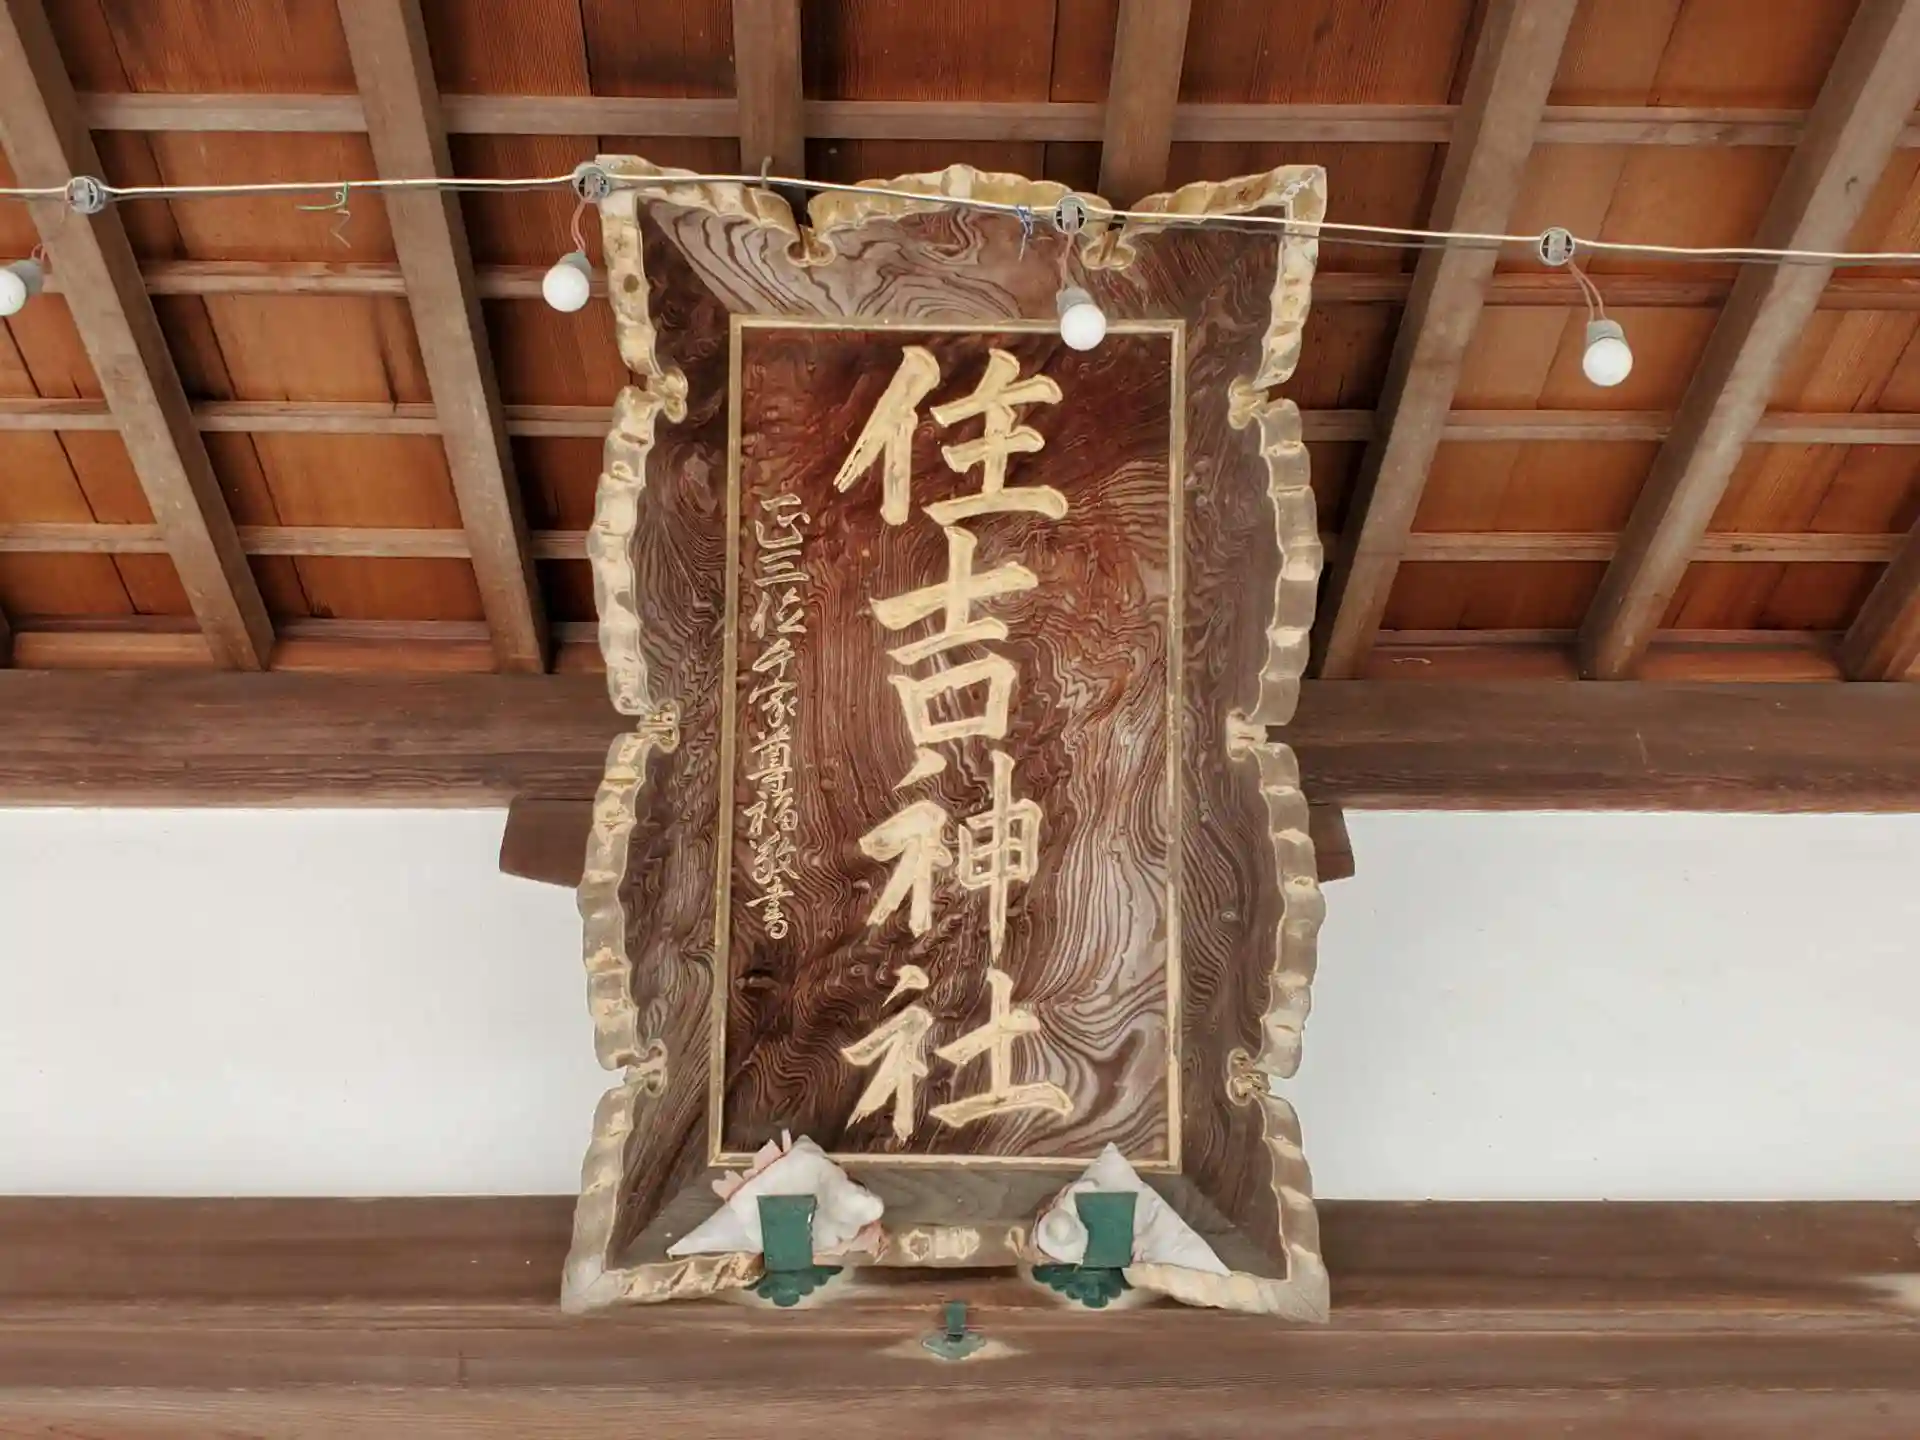 住吉神社
正三位千家尊福敬書